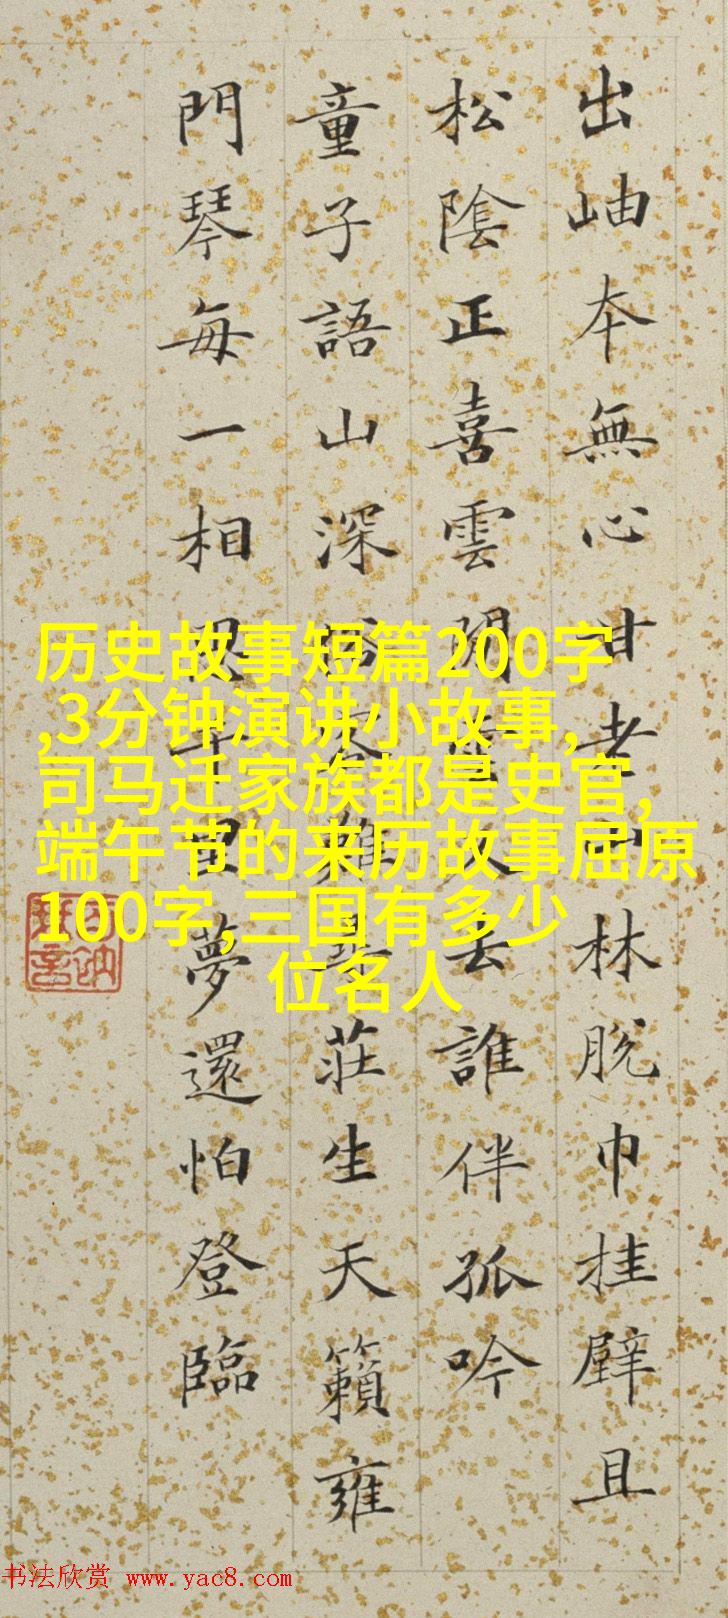 出岫本無心甘老林脫巾挂壁且
松陰正喜雲閒人去誰伴孤吟
童子語山深難尋莊生天籟雍
門琴每一相思千里夢還怕登臨
历史故事短篇200字
,3分钟演讲小故事,
司马迁家族都是史官,
端午节的来历故事屈原
100字,三国有多少
位名人
书法欣赏 www.yac8.com